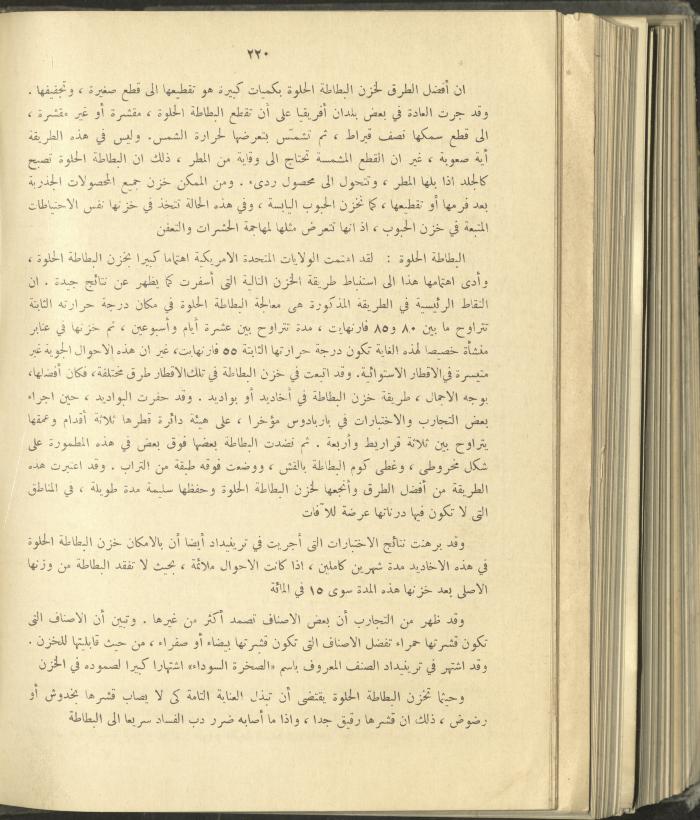 ٢٢٠
ان أفضل الطرق لخزن البطاطة الحلوة بكميات كبيرة هو تقطيعها الى قطع صغيرة ، وتجفيفها .
وقد جرت العادة في بعض بلدان أفريقيا على أن تقطع البطاطة الحلوة ، مقشرة أو غير مقشرة ،
الى قطع سمكها نصف قيراط ، ثم تشمّس بتعرضها لحرارة الشمس. وليس في هذه الطريقة
أية صعوبة ، غير ان القطع المشمسة تحتاج الى وقاية من المطر ، ذلك ان البطاطة الحلوة تصبح
كالجلد اذا بلها المطر ، وتتحول الى محصول ردىء . ومن الممكن خزن جميع المحصولات الجذرية
بعد فرمها أو تقطيعها ، كما تخزن الحبوب اليابسة ، وفي هذه الحالة تتخذ في خزنها نفس الاحتياطات
المتبعة في خزن الحبوب ، اذ انها تتعرض مثلها لمهاجمة الحشرات والتعفن
البطاطة الحلوة : لقد اهتمت الولايات المتحدة الامريكية اهتماما كبيرا بخزن البطاطة الحلوة ،
وأدى اهتمامها هذا الى استنباط طريقة الخزن التالية التى أسفرت كما يظهر عن نتائج جيدة . ان
النقاط الرئيسية في الطريقة المذكورة هى معالجة البطاطة الحلوة في مكان درجة حرارته الثابتة
تتراوح ما بين ٨٠ و٨٥ فارنهايت ، مدة تتراوح بين عشرة أيام وأسبوعين ، ثم خزنها في عنابر
منشأة خصيصا لهذه الغاية تكون درجة حرارتها الثابتة ٥٥ فارنهايت، غير ان هذه الاحوال الجوية غير
متيسرة في الاقطار الاستوائية. وقد اتبعت في خزن البطاطة في تلك الاقطار طرق مختلفة، فكان أفضلها،
بوجه الاجمال ، طريقة خزن البطاطة في أخاديد أو بواديد . وقد حفرت البواديد ، حين اجراء
بعض التجارب والاختبارات في باربادوس مؤخرا ، على هيئة دائرة قطرها ثلاثة أقدام وعمقها
يتراوح بين ثلاثة قراريط وأربعة . ثم نضدت البطاطة بعضها فوق بعض في هذه المطمورة على
شكل مخروطى ، وغطى كوم البطاطة بالقش ، ووضعت فوقه طبقة من التراب . وقد اعتبرت هذه
الطريقة من أفضل الطرق وأنجعها لخزن البطاطة الحلوة وحفظها سليمة مدة طويلة ، في المناطق
التى لا تكون فيها درناتها عرضة للآفات
وقد برهنت نتائج الاختبارات التى أجريت في ترينيداد أيضا أن بالامكان خزن البطاطة الحلوة
في هذه الاخاديد مدة شهرين كاملين ، اذا كانت الاحوال ملائمة ، بحيث لا تفقد البطاطة من وزنها
الاصلى بعد خزنها هذه المدة سوى ١٥ في المائة
وقد ظهر من التجارب أن بعض الاصناف تصمد أكثر من غيرها . وتبين أن الاصناف التى
تكون قشرتها حمراء تفضل الاصناف التى تكون قشرتها بيضاء أو صفراء ، من حيث قابليتها للخزن .
وقد اشتهر في ترينيداد الصنف المعروف باسم «الصخرة السوداء» اشتهارا كبيرا لصموده في الخزن
وحيثما تخزن البطاطة الحلوة يقتضى أن تبذل العناية التامة كى لا يصاب قشرها بخدوش أو
رضوض ، ذلك ان قشرها رقيق جدا ، واذا ما أصابه ضرر دب الفساد سريعا الى البطاطة